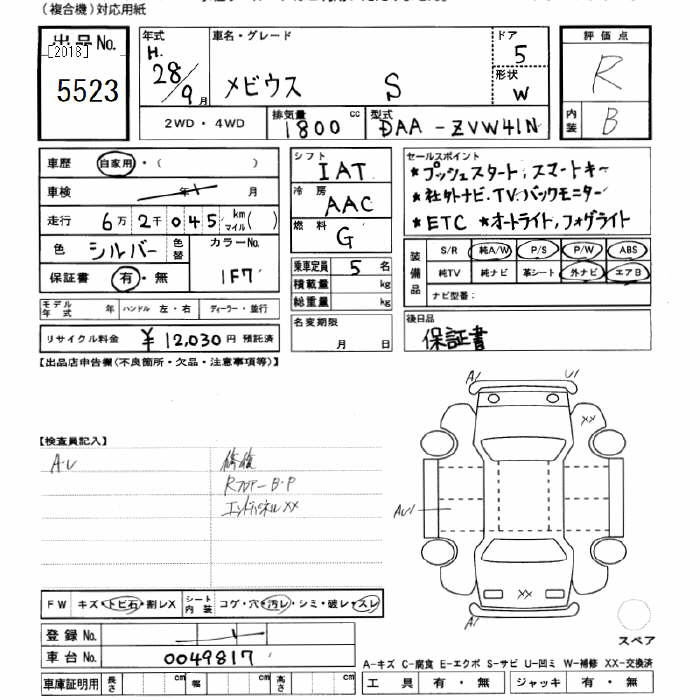 (複合機)対応用紙
出品No.
[2018]
5523
年式
H.
28/9月
車名・グレード
メビウス S
ドア
5
形状
W
評価点
R
内装 B
2WD・4WD
排気量 1800 cc
型式 DAA-ZVW41N
車歴 自家用・( )
車検 年 月
走行 6万2千045 km マイル( )
色 シルバー 色替 カラーNo. 1F7
保証書 有・無
シフト IAT
冷房 AAC
燃料 G
乗車定員 5名
積載量 kg
総重量 kg
セールスポイント
★プッシュスタート,スマートキー
★社外ナビ.TV.バックモニター
★ETC ★オートライト,フォグライト
装備品
S/R 純A/W P/S P/W ABS
純TV 純ナビ 革シート 外ナビ エアB
ナビ型番:
モデル年式 年 ハンドル 左・右 ディーラー・並行
リサイクル料金 ¥12,030円 預託済
名変期限 月 日
後日品
保証書
【出品店申告欄(不良箇所・欠品・注意事項等)】
【検査員記入】
A・U
修復
Rフロアー B・P
エンドパネル XX
A1 U1
XX
AU1
XX
A1
スペア
FW キズ・トビ石・割レX シート内装 コゲ・穴・汚レ・シミ・破レ・スレ
登録No.
車台No. 0049817
車庫証明用 長さ cm 幅 cm 高さ cm
A-キズ C-腐食 E-エクボ S-サビ U-凹ミ W-補修 XX-交換済
工具 有・無 ジャッキ 有・無